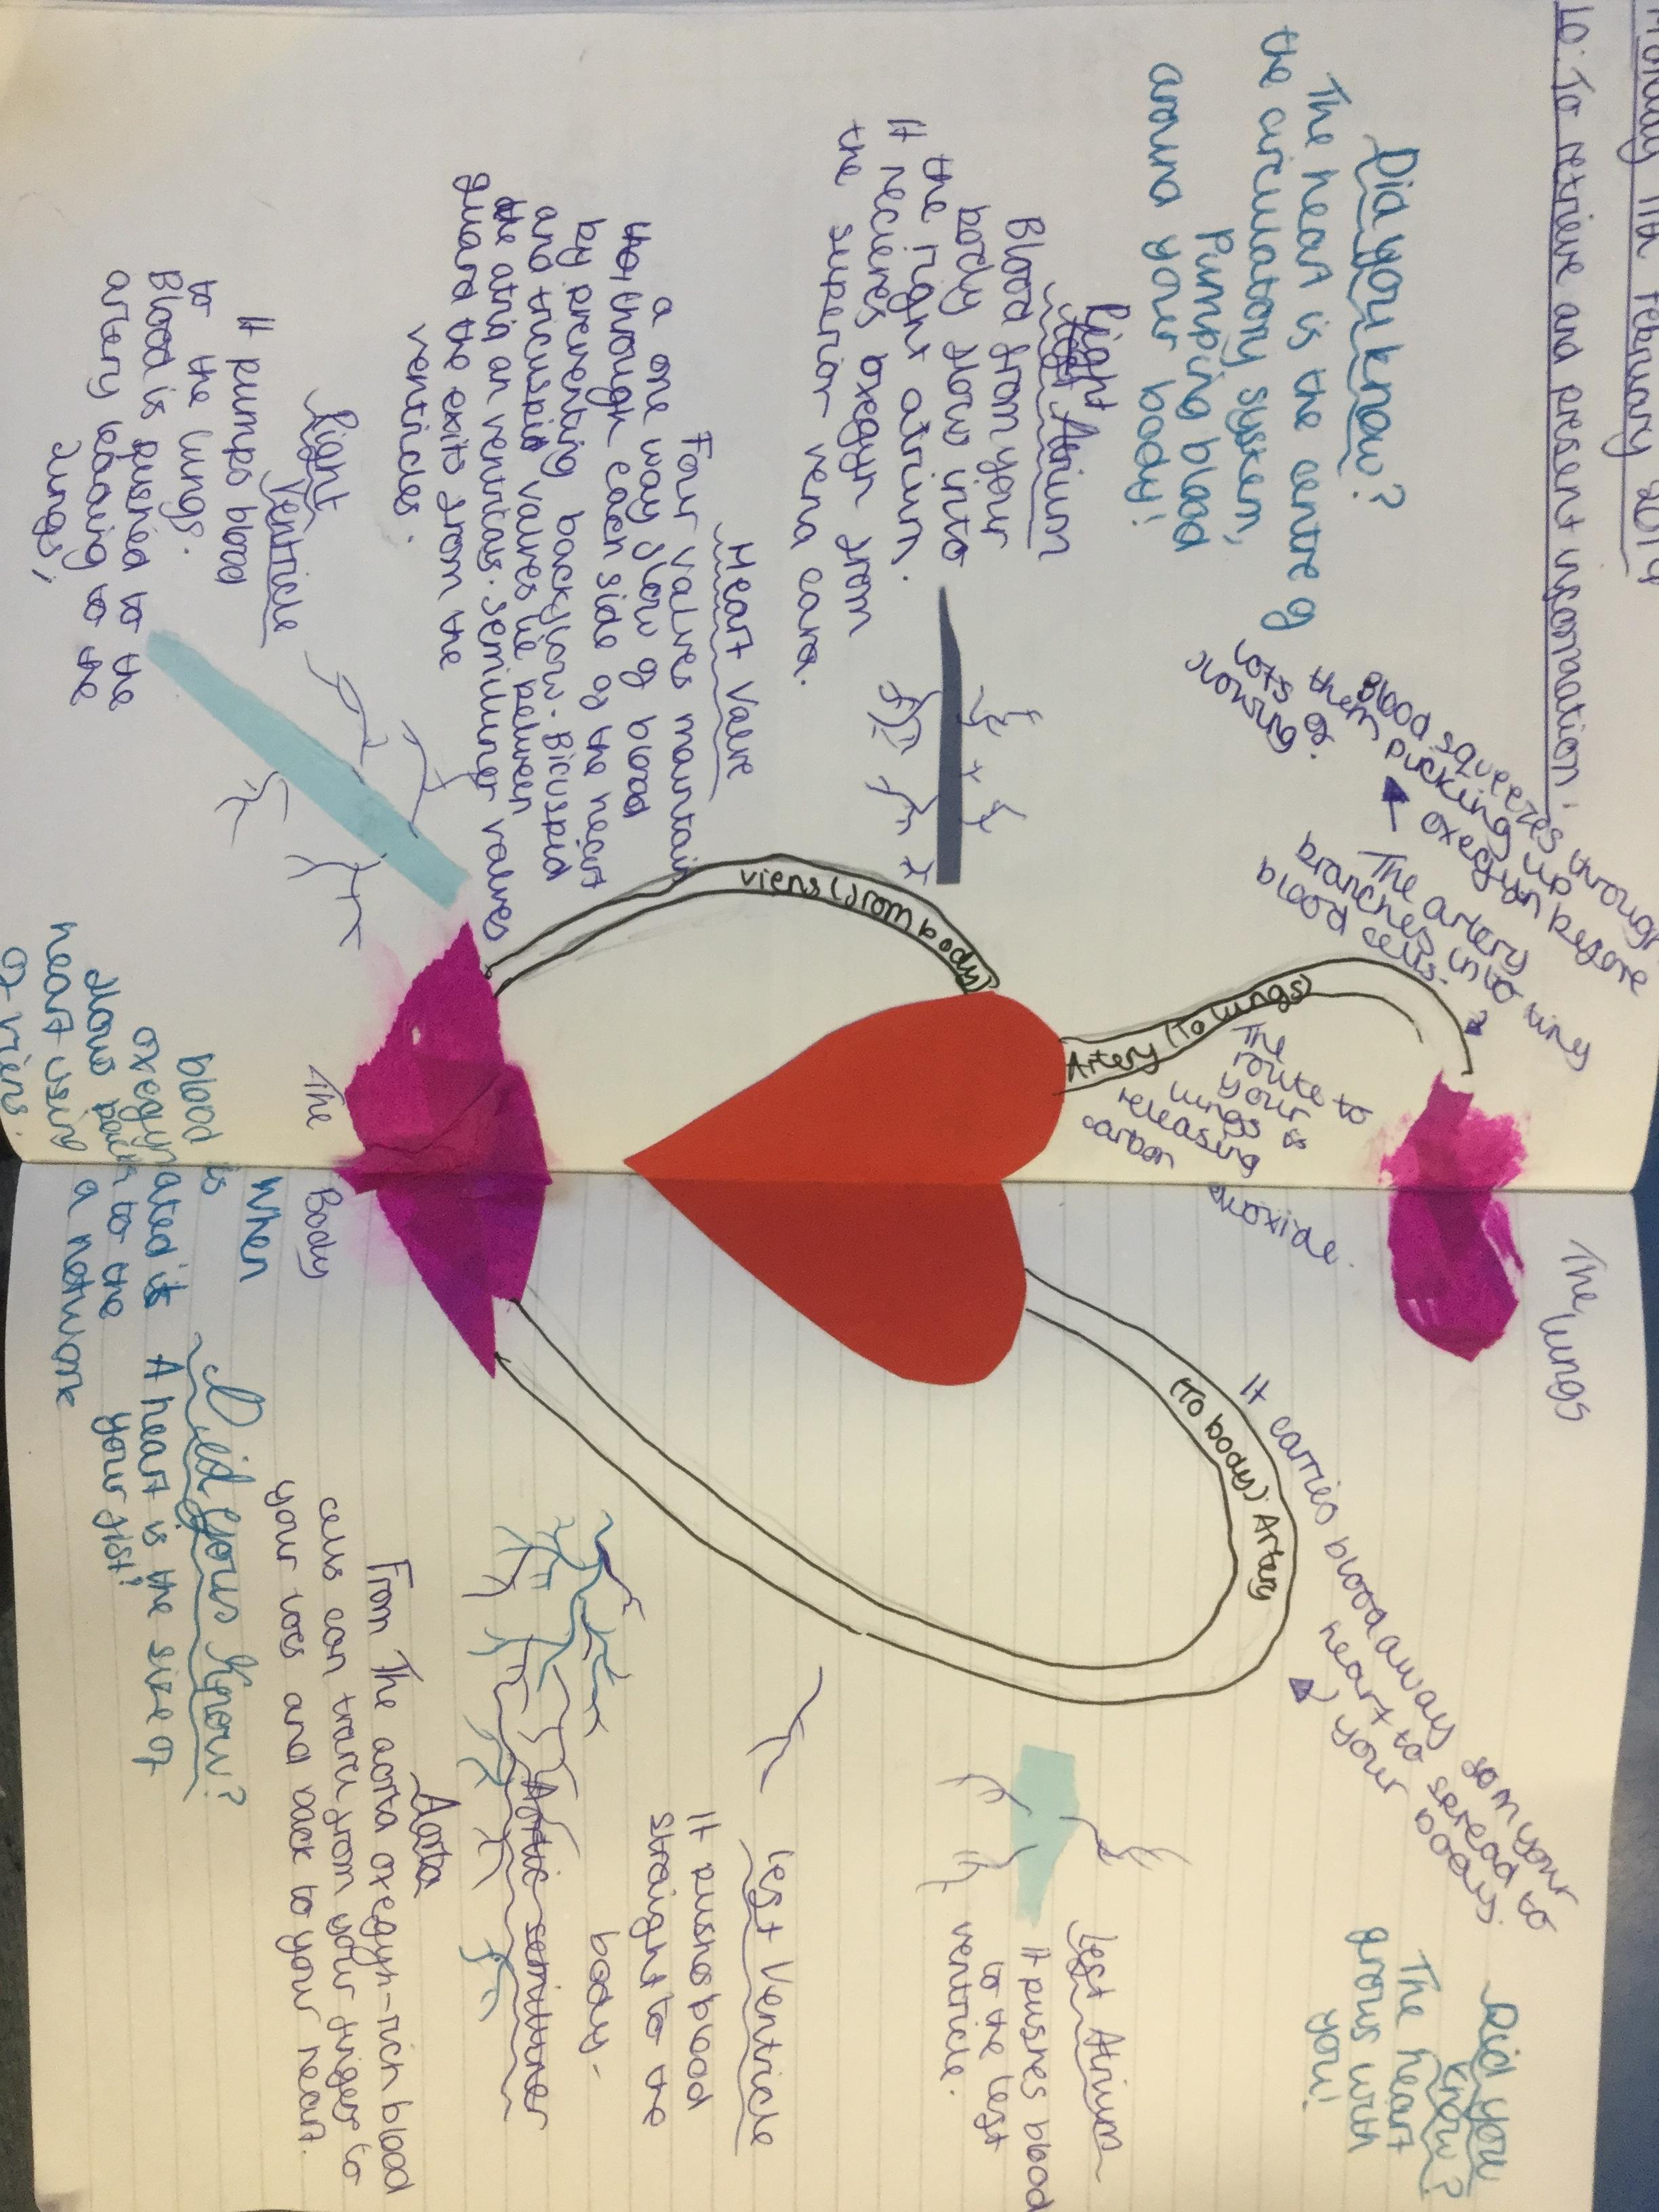 Monday 11th February 2019
Lo: To retrieve and present information.
Did you know?
The heart is the centre of
the circulatory system,
Pumping blood
around your body!
Right
Left Atrium
Blood from your
body flow into
the right atrium.
It recieves oxegyn from
the superior vena cava.
Heart Valve
Four valves maintain
a one way flow of blood
through each side of the heart
by preventing backflow. Bicuspid
and tricuspid valves lie between
the atria an ventricles. semiluner valves
guard the exits from the
ventricles.
Right
Ventricle
It pumps blood
to the lungs.
Blood is pushed to the
artery leading to the
lungs,
Blood squeezes through
them picking up
lots of oxegyn before
The artery
branches into tiny
blood cells.
viens (from body)
Artery (To lungs)
The
route to
your
lungs is
releasing
carbon
The lungs
(To body) Artery
It carries blood away from your
heart to spread to
your body.
Did you
know?
The heart
grows with
you!
Left Atrium
It pushes blood
to the left
ventricle.
Left Ventricle
It pushes blood
straight to the
body.
Aortic semiluner
Aorta
From The aorta oxegyn-rich blood
cells can travel from your finger to
your toes and back to your heart.
The Body
When
blood is
oxegynated it
flows back to the
heart using a network
of viens.
Did you know?
A heart is the size of
your fist!